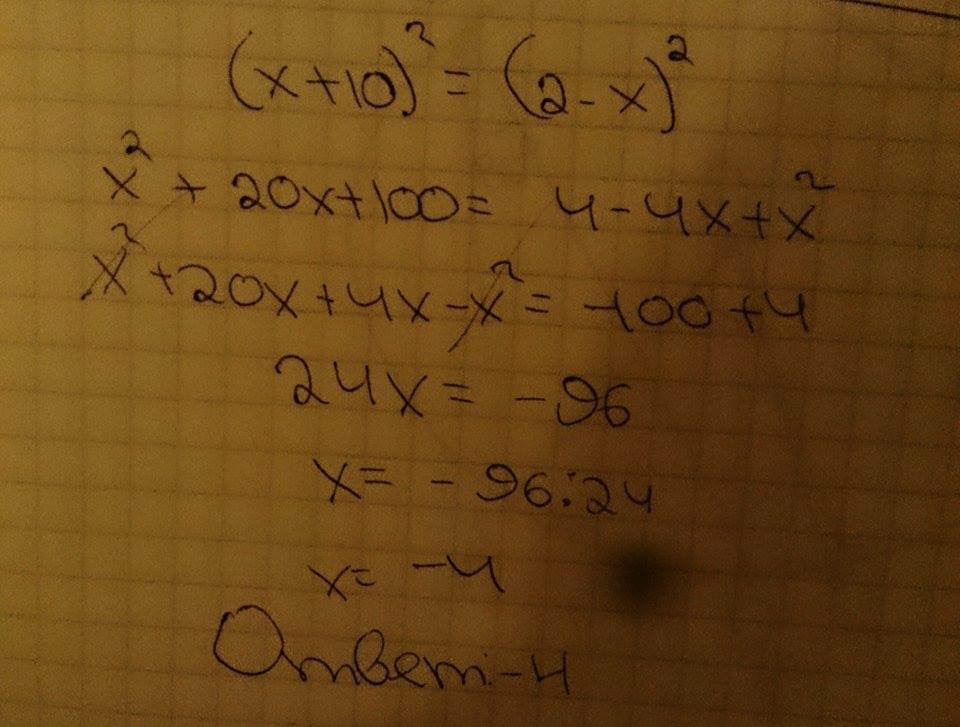 (x+10)² = (2-x)²
x² + 20x+100 = 4-4x+x²
x²+20x+4x-x² = -100+4
24x = -96
x = -96:24
x = -4
Ответ: -4